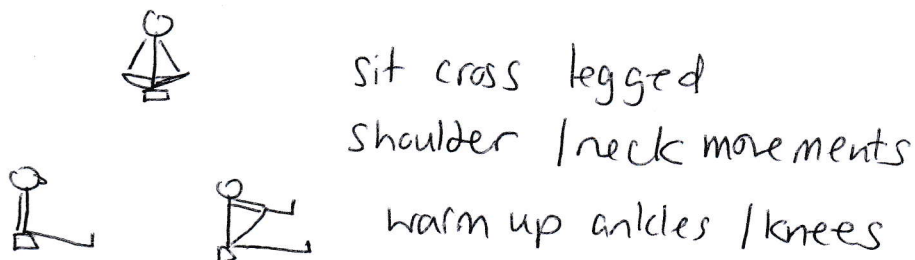 sit cross legged
shoulder / neck movements
warm up ankles / knees